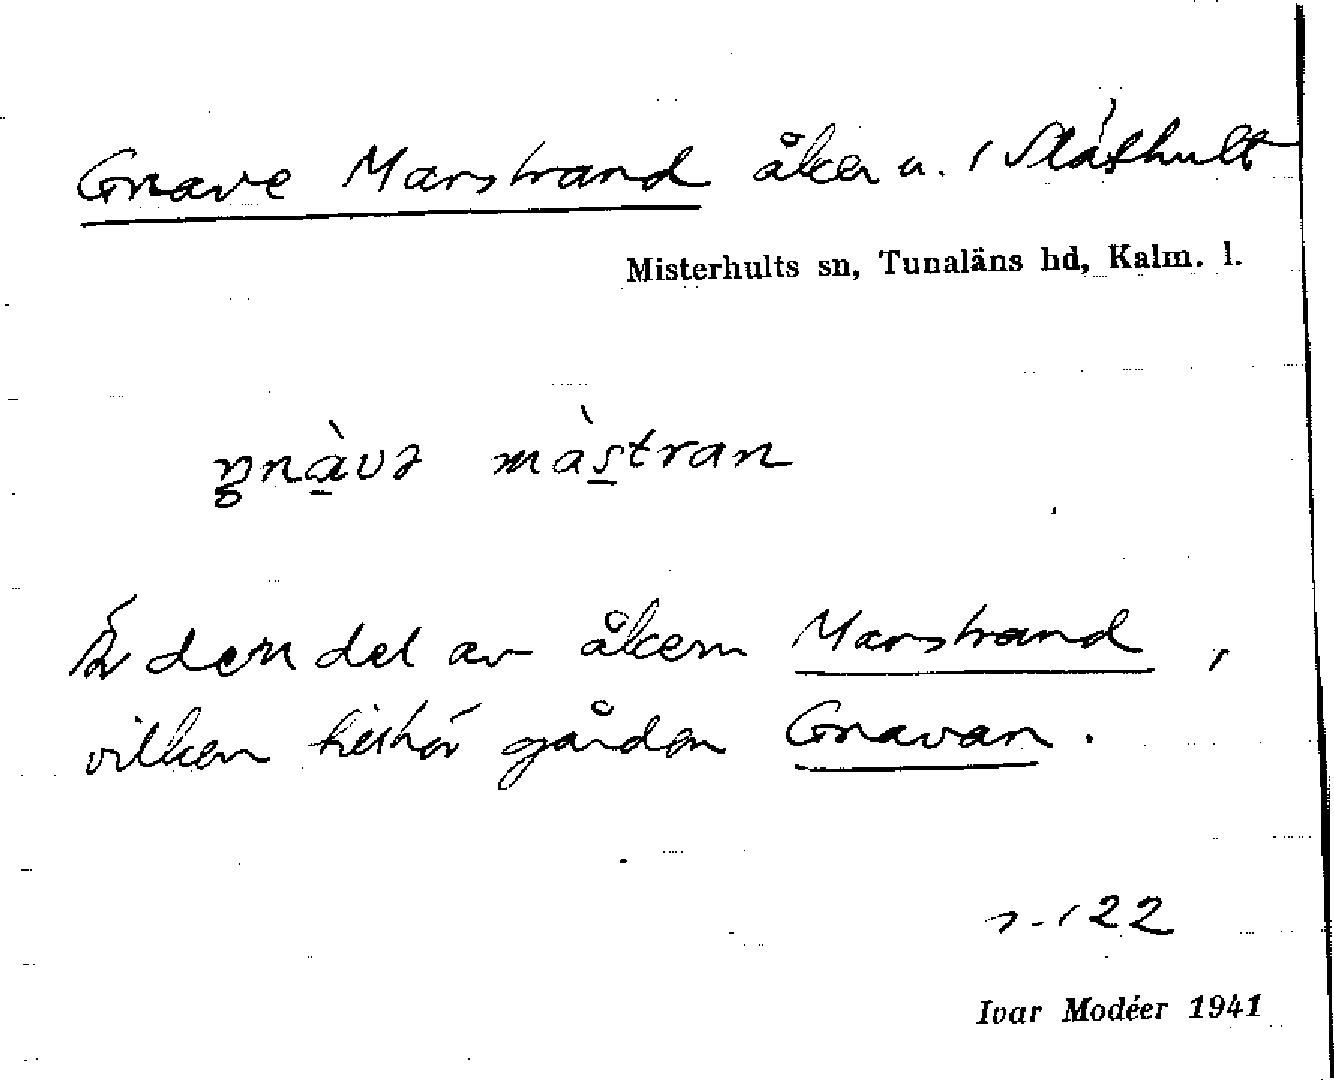 Gnave Marstrand åker u. 1 Slåthult
Misterhults sn, Tunaläns hd, Kalm. l.
gnàvə màs̱tran
Är den del av åkern Marstrand,
vilken tillhör gården Gnavan.
s. 122
Ivar Modéer 1941